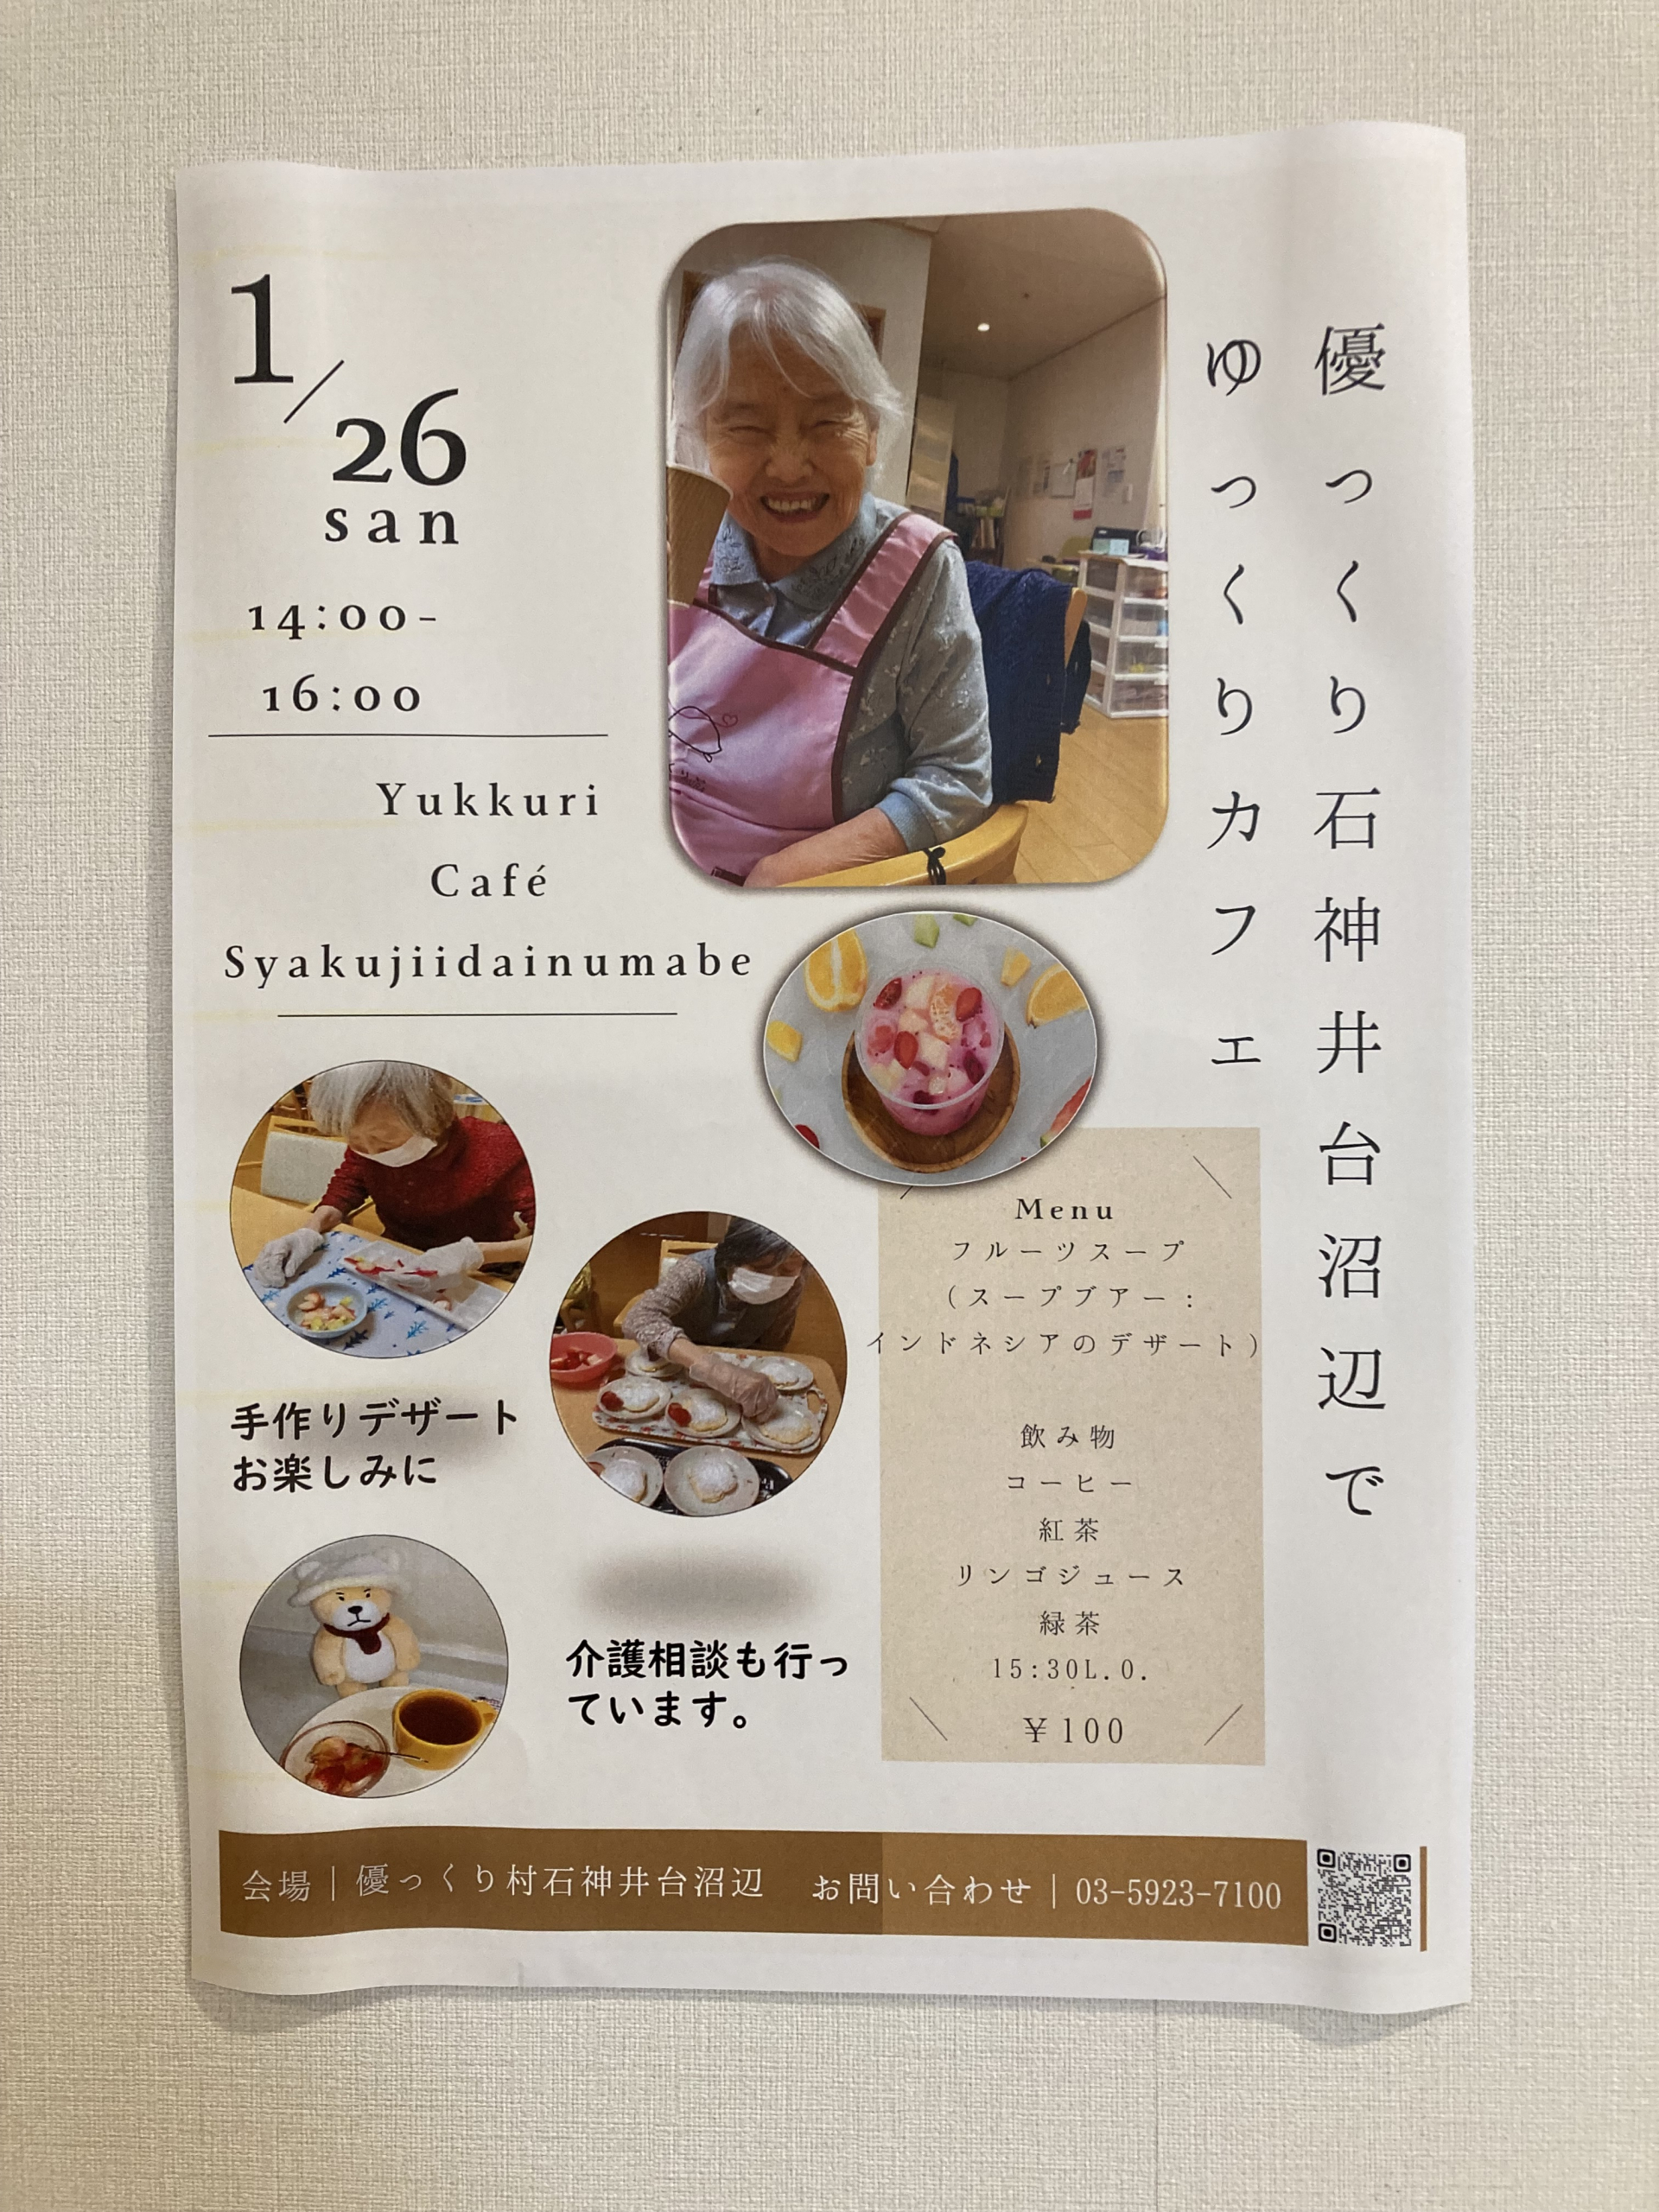 優っくり石神井台沼辺で
ゆっくりカフェ
1/26
san
14:00-
16:00
Yukkuri
Café
Syakujiidainumabe
Menu
フルーツスープ
（スープブアー：
インドネシアのデザート）
飲み物
コーヒー
紅茶
リンゴジュース
緑茶
15:30L.O.
¥100
手作りデザート
お楽しみに
介護相談も行っ
ています。
会場｜優っくり村石神井台沼辺 お問い合わせ｜03-5923-7100